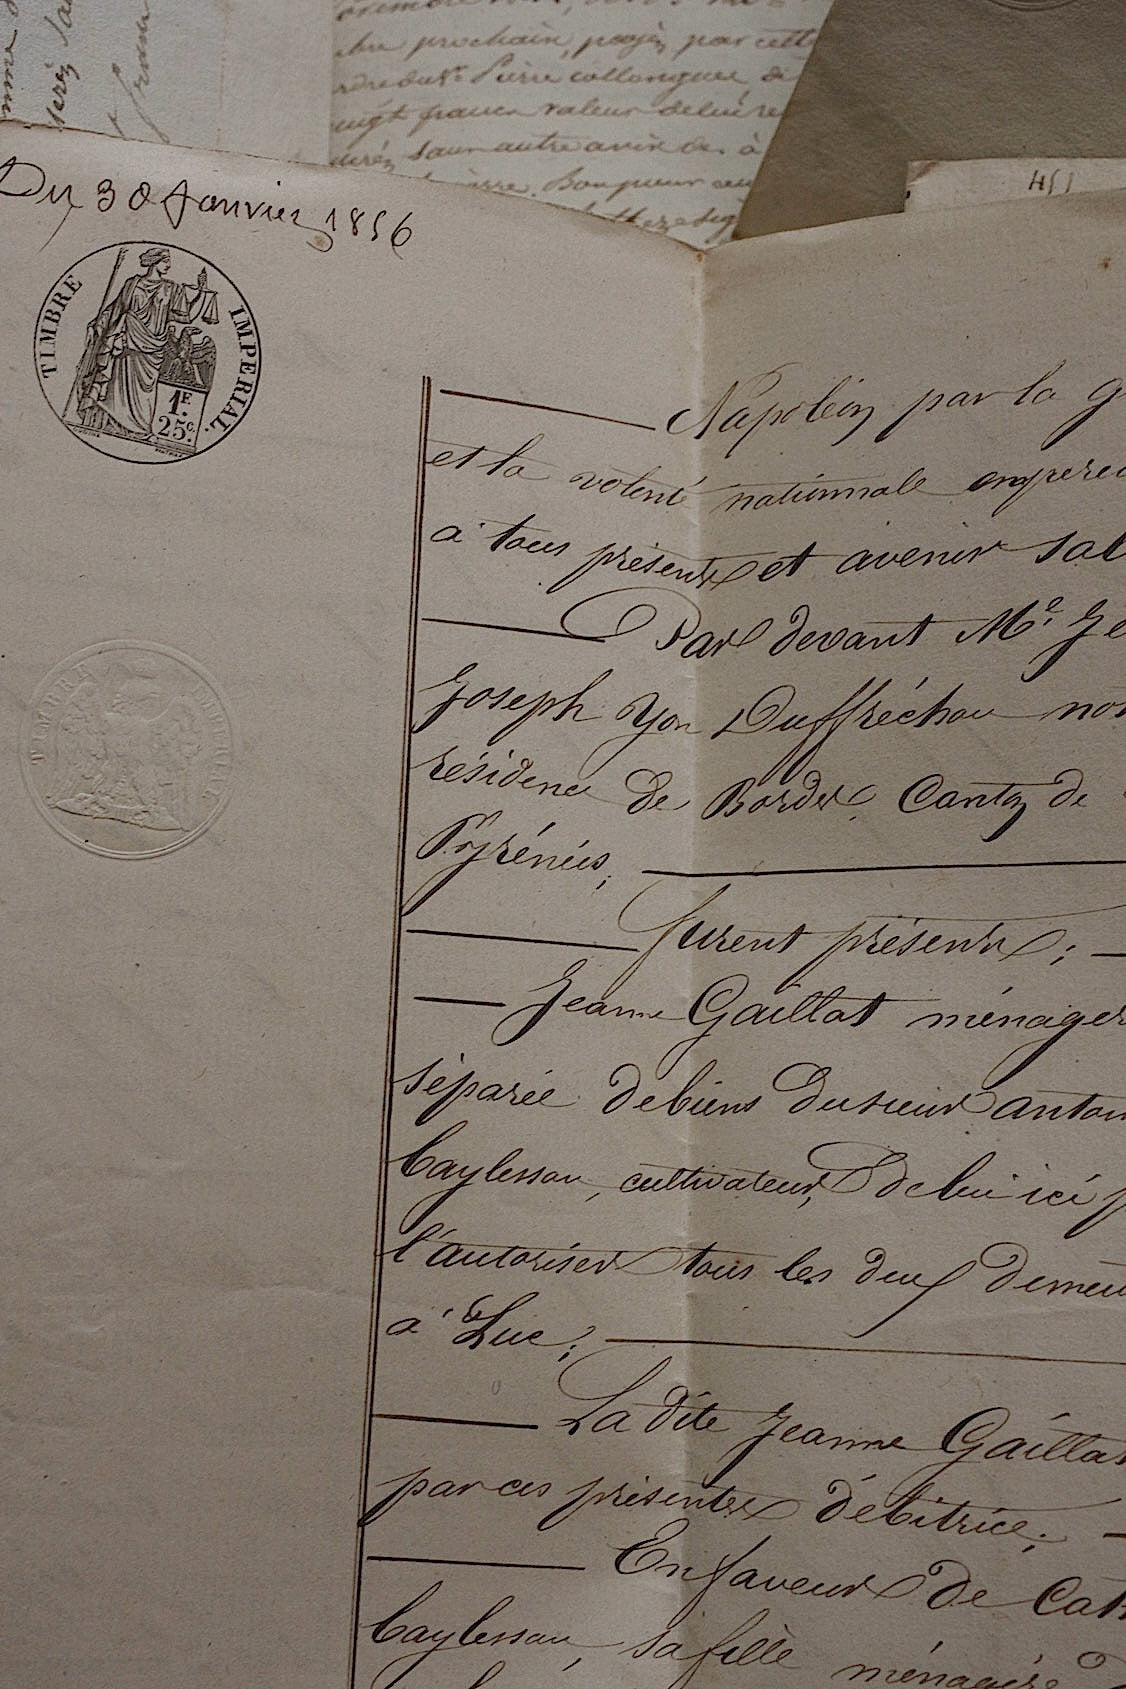 prochain, payez par cette
Pierre collongues de
vingt francs valeur
sans autre avis de. à
Du 30 Janvier 1856
455
TIMBRE IMPERIAL.
1F.
25c.
Napoléon par la g
et la volonté nationnale empereu
a tous présents et avenir sal
Par devant Me. Je
Joseph Yon Duffréchou not
résidence de Bordes. Canton de
Pyrénées,
TIMBRE IMPERIAL
furent présents;
Jeanne Gaillat ménagèr
séparée debiens dusieur anton
Caylessou, cultivateur, delui ici p
l'autoriser tous les deux demeu
a Luc;
La dite Jeanne Gaillat
par ces présentes débitrice;
En faveur de Cath
Caylessou, sa fille ménagère